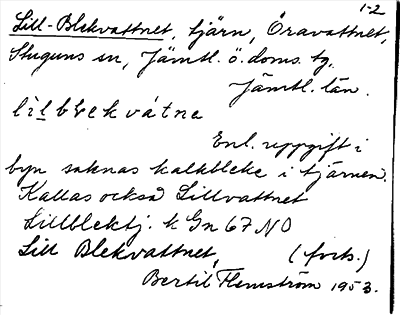 1-2
Lill-Blekvattnet, tjärn, Öravattnet,
Stuguns sn, Jämtl. ö. doms. tg.
Jämtl. län.
lìlbḷekvátne
Enl. uppgift i
byn saknas kalkbleke i tjärnen.
Kallas också Lillvattnet
Lillblektj. k Gn 67 NO
Lill Blekvattnet, (forts.)
Bertil Flemström 1953.